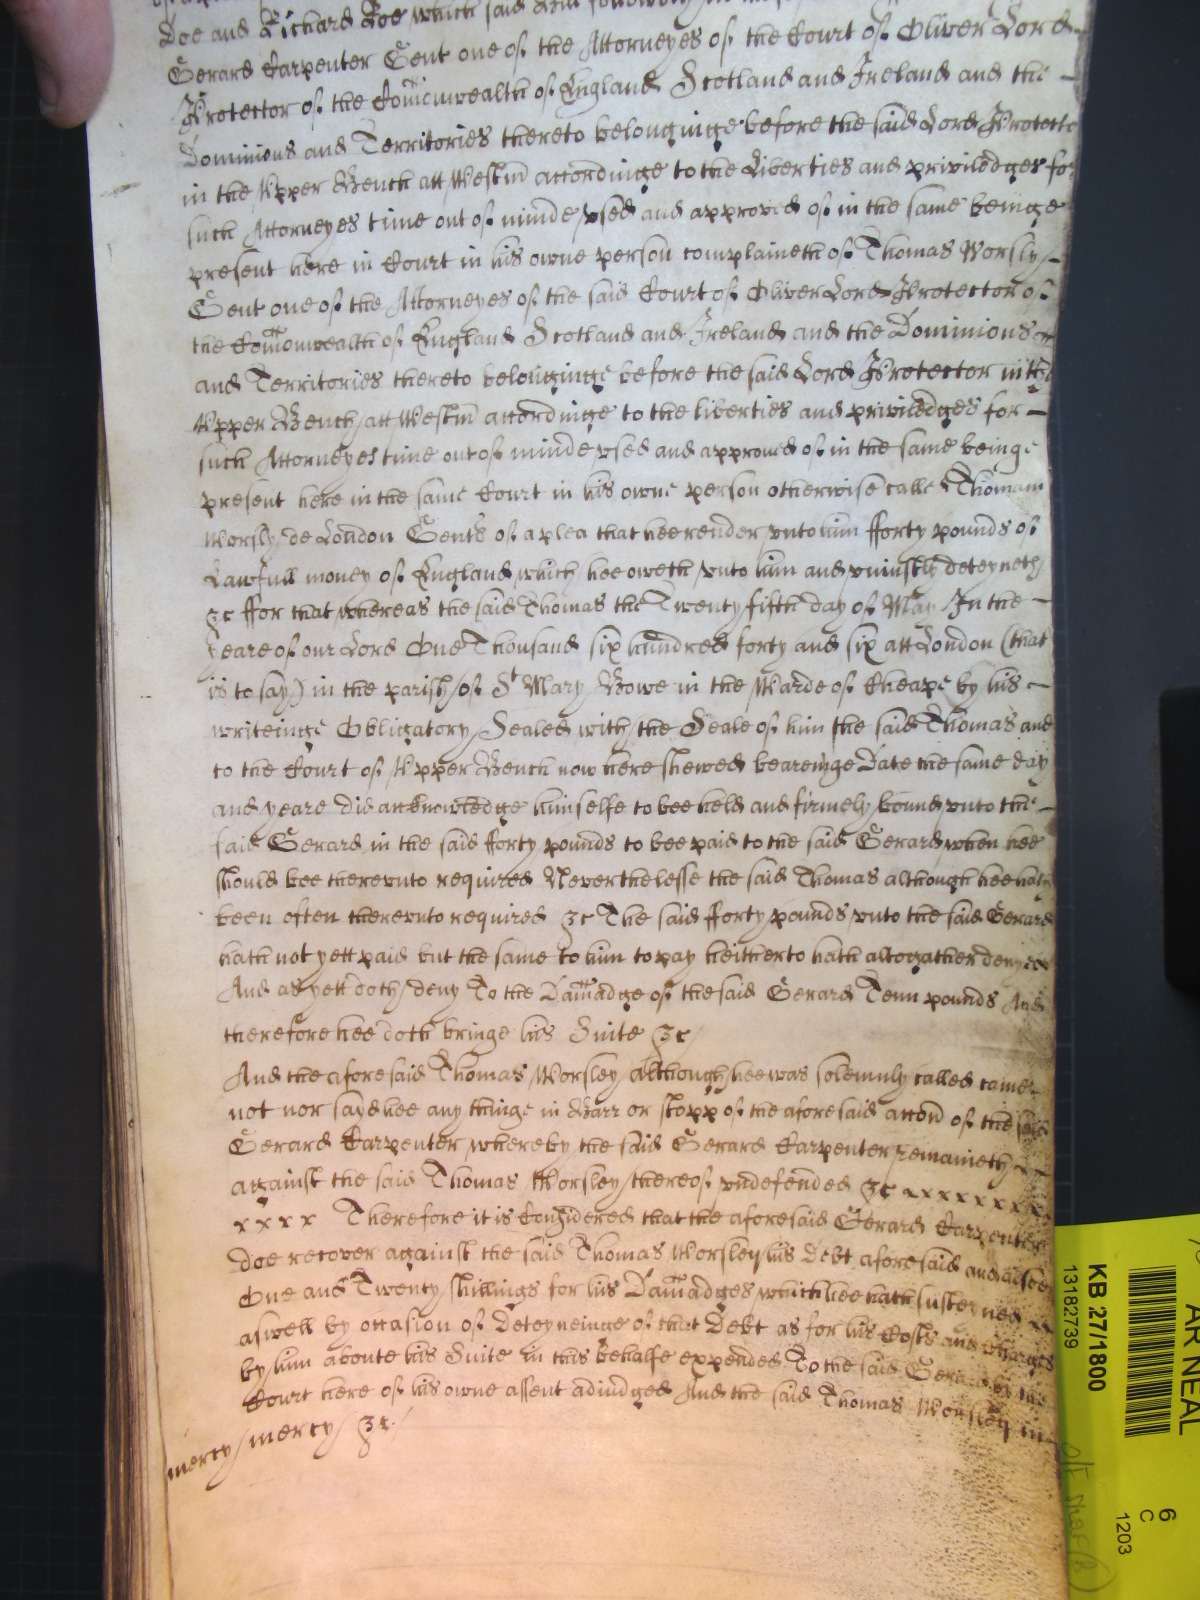 Doe and Richard Roe which said Bill followeth in
Gerard Carpenter Gent one of the Attorneyes of the Court of Oliver Lord
Protector of the Com̄onwealth of England Scotland and Ireland and the
Dominions and Territories thereto belonginge before the said Lord Protecto
in the Vpper Bench att Westm̄ accordinge to the Liberties and priviledges for
such Attorneyes time out of minde vsed and approved of in the same beinge
present here in Court in his owne person complaineth of Thomas Worsly
Gent one of the Attorneyes of the said Court of Oliver Lord Protector of
the Com̄onwealth of England Scotland and Ireland and the Dominions
and Territories thereto belonginge before the said Lord Protector in the
Vpper Bench att Westm̄ accordinge to the liberties and priviledges for
such Attorneyes time out of minde vsed and approued of in the same beinge
present here in the same Court in his owne person otherwise called Thomam
Worsly de London Gent of a plea that hee render vnto him fforty pounds of
Lawfull money of England which hee oweth vnto him and vniustly deteyneth
&c ffor that whereas the said Thomas the Twenty fifth day of May In the
yeare of our Lord One Thousand six hundred forty and six att London (that
is to say) in the parish of St Mary Bowe in the Warde of Cheape by his
writeinge Obligatory Sealed with the Seale of him the said Thomas and
to the Court of Vpper Bench now here shewed beareinge Date the same day
and yeare did acknowledge himselfe to bee held and firmely bound vnto the
said Gerard in the said fforty pounds to bee paid to the said Gerard when hee
should bee therevnto required Neverthelesse the said Thomas although hee hath
been often therevnto required &c The said fforty pounds vnto the said Gerard
hath not yett paid but the same to him to pay heitherto hath altogather denyed
And as yett doth deny To the Dam̄adge of the said Gerard Tenn pounds And
therefore hee doth bringe his Suite &c
And the aforesaid Thomas Worsley although hee was solemnly called came
not nor sayd hee any thinge in Barr or stopp of the aforesaid accōn of the said
Gerard Carpenter whereby the said Gerard Carpenter remaineth
against the said Thomas Worsley thereof vndefended &c x x x x x x x x
x x x x Therefore it is Considered that the aforesaid Gerard Carpenter
Doe recover against the said Thomas Worsley his Debt aforesaid and alsoe
One and Twenty shillings for his Dam̄adges which hee hath susteyned
aswell by occasion of Deteyneinge of that Debt as for his Costs and charges
by him aboute his Suite in this behalfe expended To the said Gerard by the
Court here of his owne assent adiudged And the said Thomas Worsley in
mercy mercy &c
AR NEAL
KB 27/1800
13182739
6
C
1203